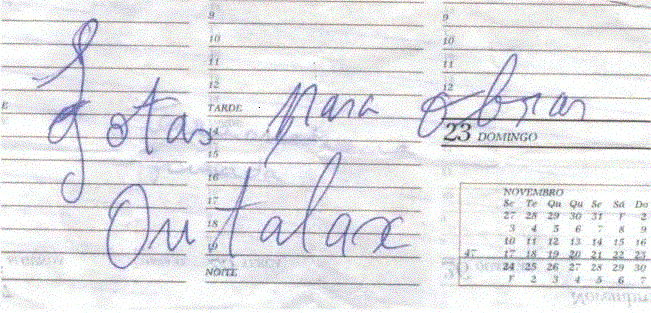 9 9
10 10
11 11
12 12
TARDE
Gotas para obrar
14
23 DOMINGO
15
16
17
Outalax
18
19
NOITE
NOVEMBRO
Se Te Qu Qu Se Sá Do
27 28 29 30 31 F 2
3 4 5 6 7 8 9
10 11 12 13 14 15 16
47 17 18 19 20 21 22 23
24 25 26 27 28 29 30
F 2 3 4 5 6 7